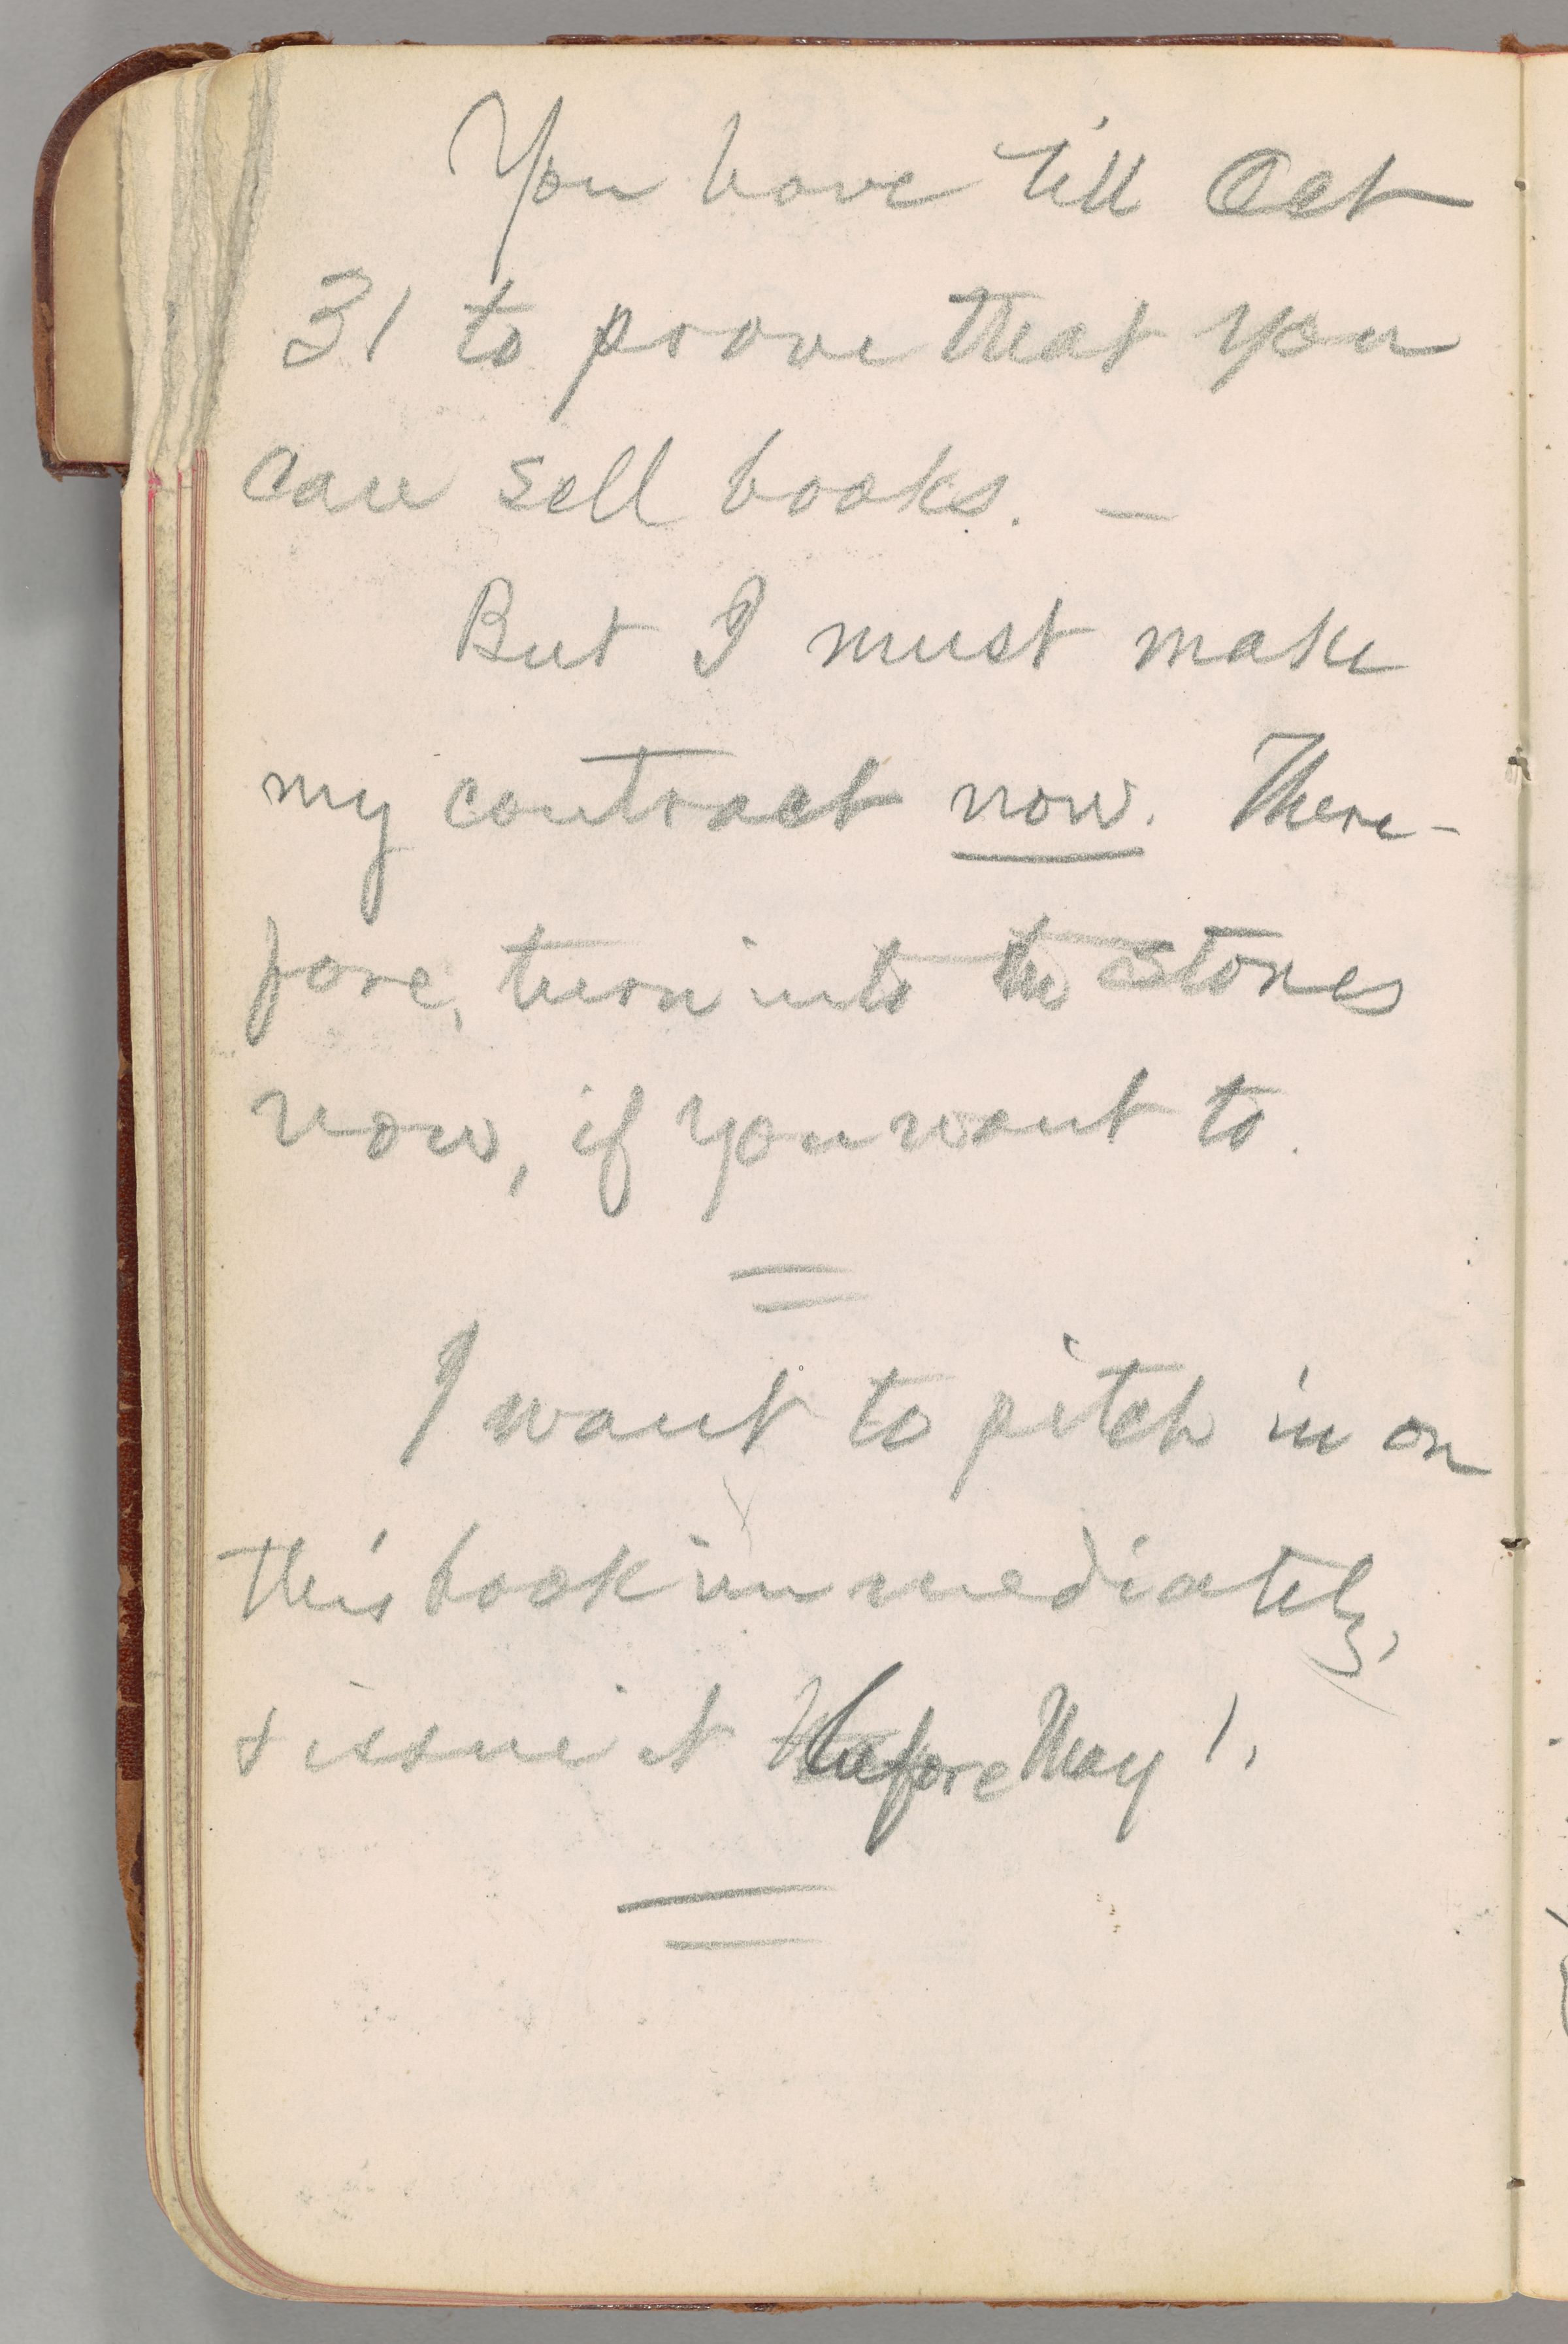 You have till Oct
31 to prove that you
can sell books. —
But I must make
my contract now. There-
fore, turn into the stores
now, if you want to.
I want to pitch in on
this book immediately,
& issue it before May 1.